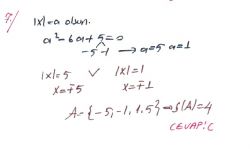 7./ |x|=a olsun.
a²-6a+5=0
-5 -1 → a=5 a=1
|x|=5 ∨ |x|=1
x=∓5 x=∓1
A={-5,-1,1,5} ⇒ s(A)=4
CEVAP:C